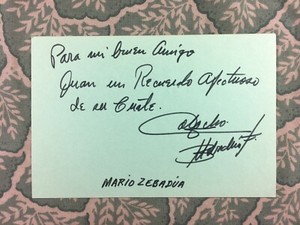 Para mi buen Amigo
Quan un Recuerdo Afectuoso
de su Cuate.
MARIO ZEBADÚA